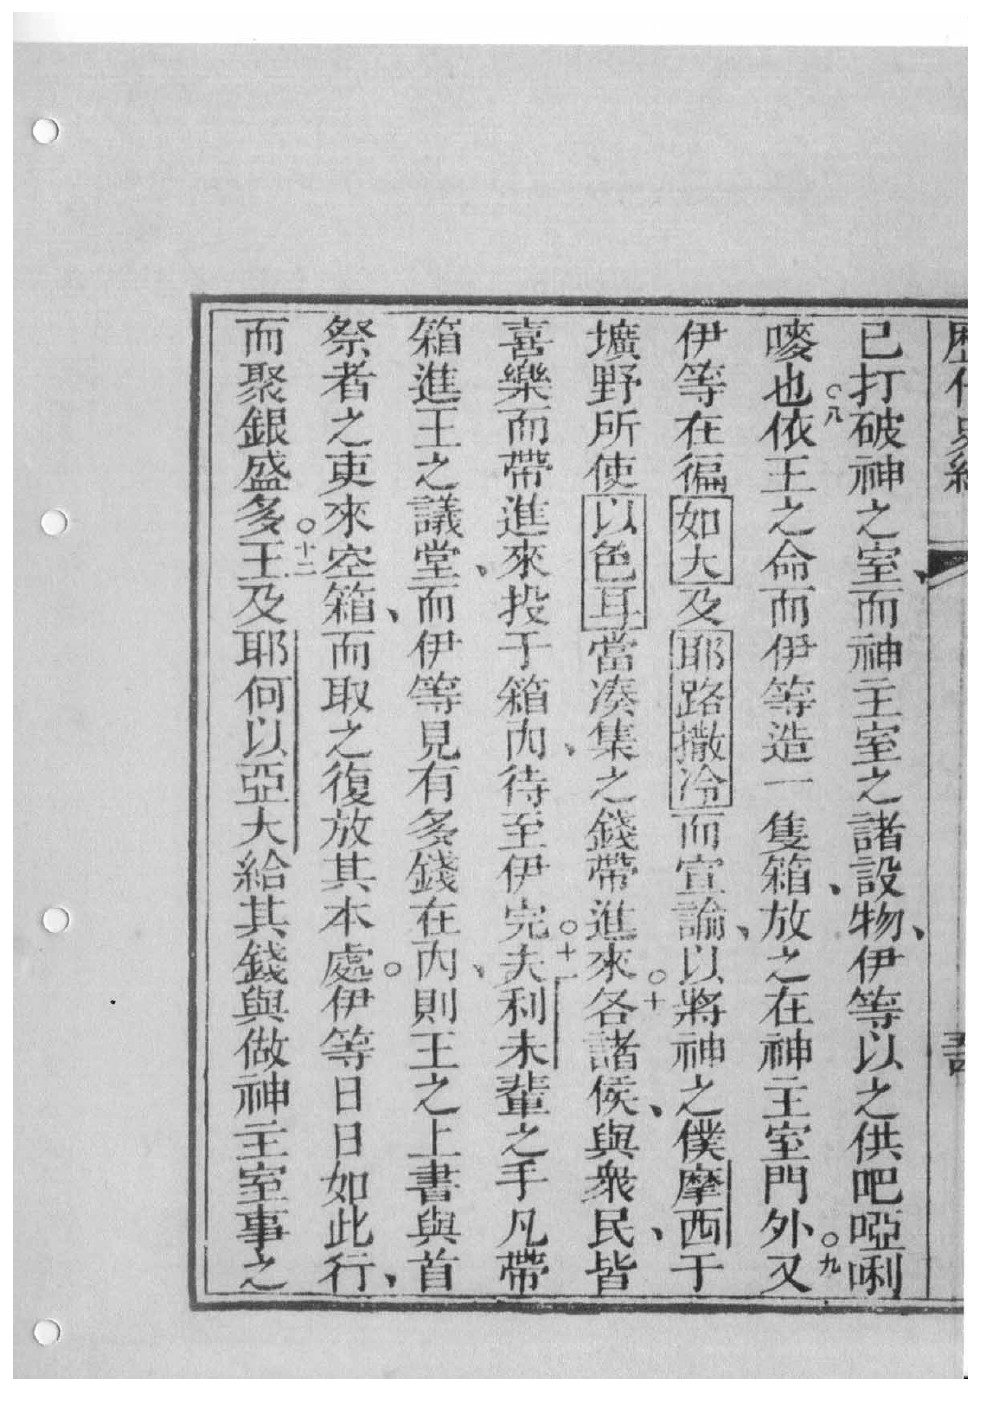 已打破神之室、而神主室之諸設物、伊等以之供吧啞唎
嘜也○八依王之命而伊等造一隻箱、放之在神主室門外○九又
伊等在徧如大及耶路撒冷而宣諭、以將神之僕摩西于
壙野所使以色耳當湊集之錢帶進來○十各諸侯、與衆民、皆
喜樂而帶進來投于箱內、待至伊完○十一夫利未輩之手凡帶
箱進王之議堂、而伊等見有多錢在內、則王之上書與首
祭者之吏來空箱、而取之復放其本處○伊等日日如此行、
而聚銀盛多○十二王及耶何以亞大給其錢與做神主室事之